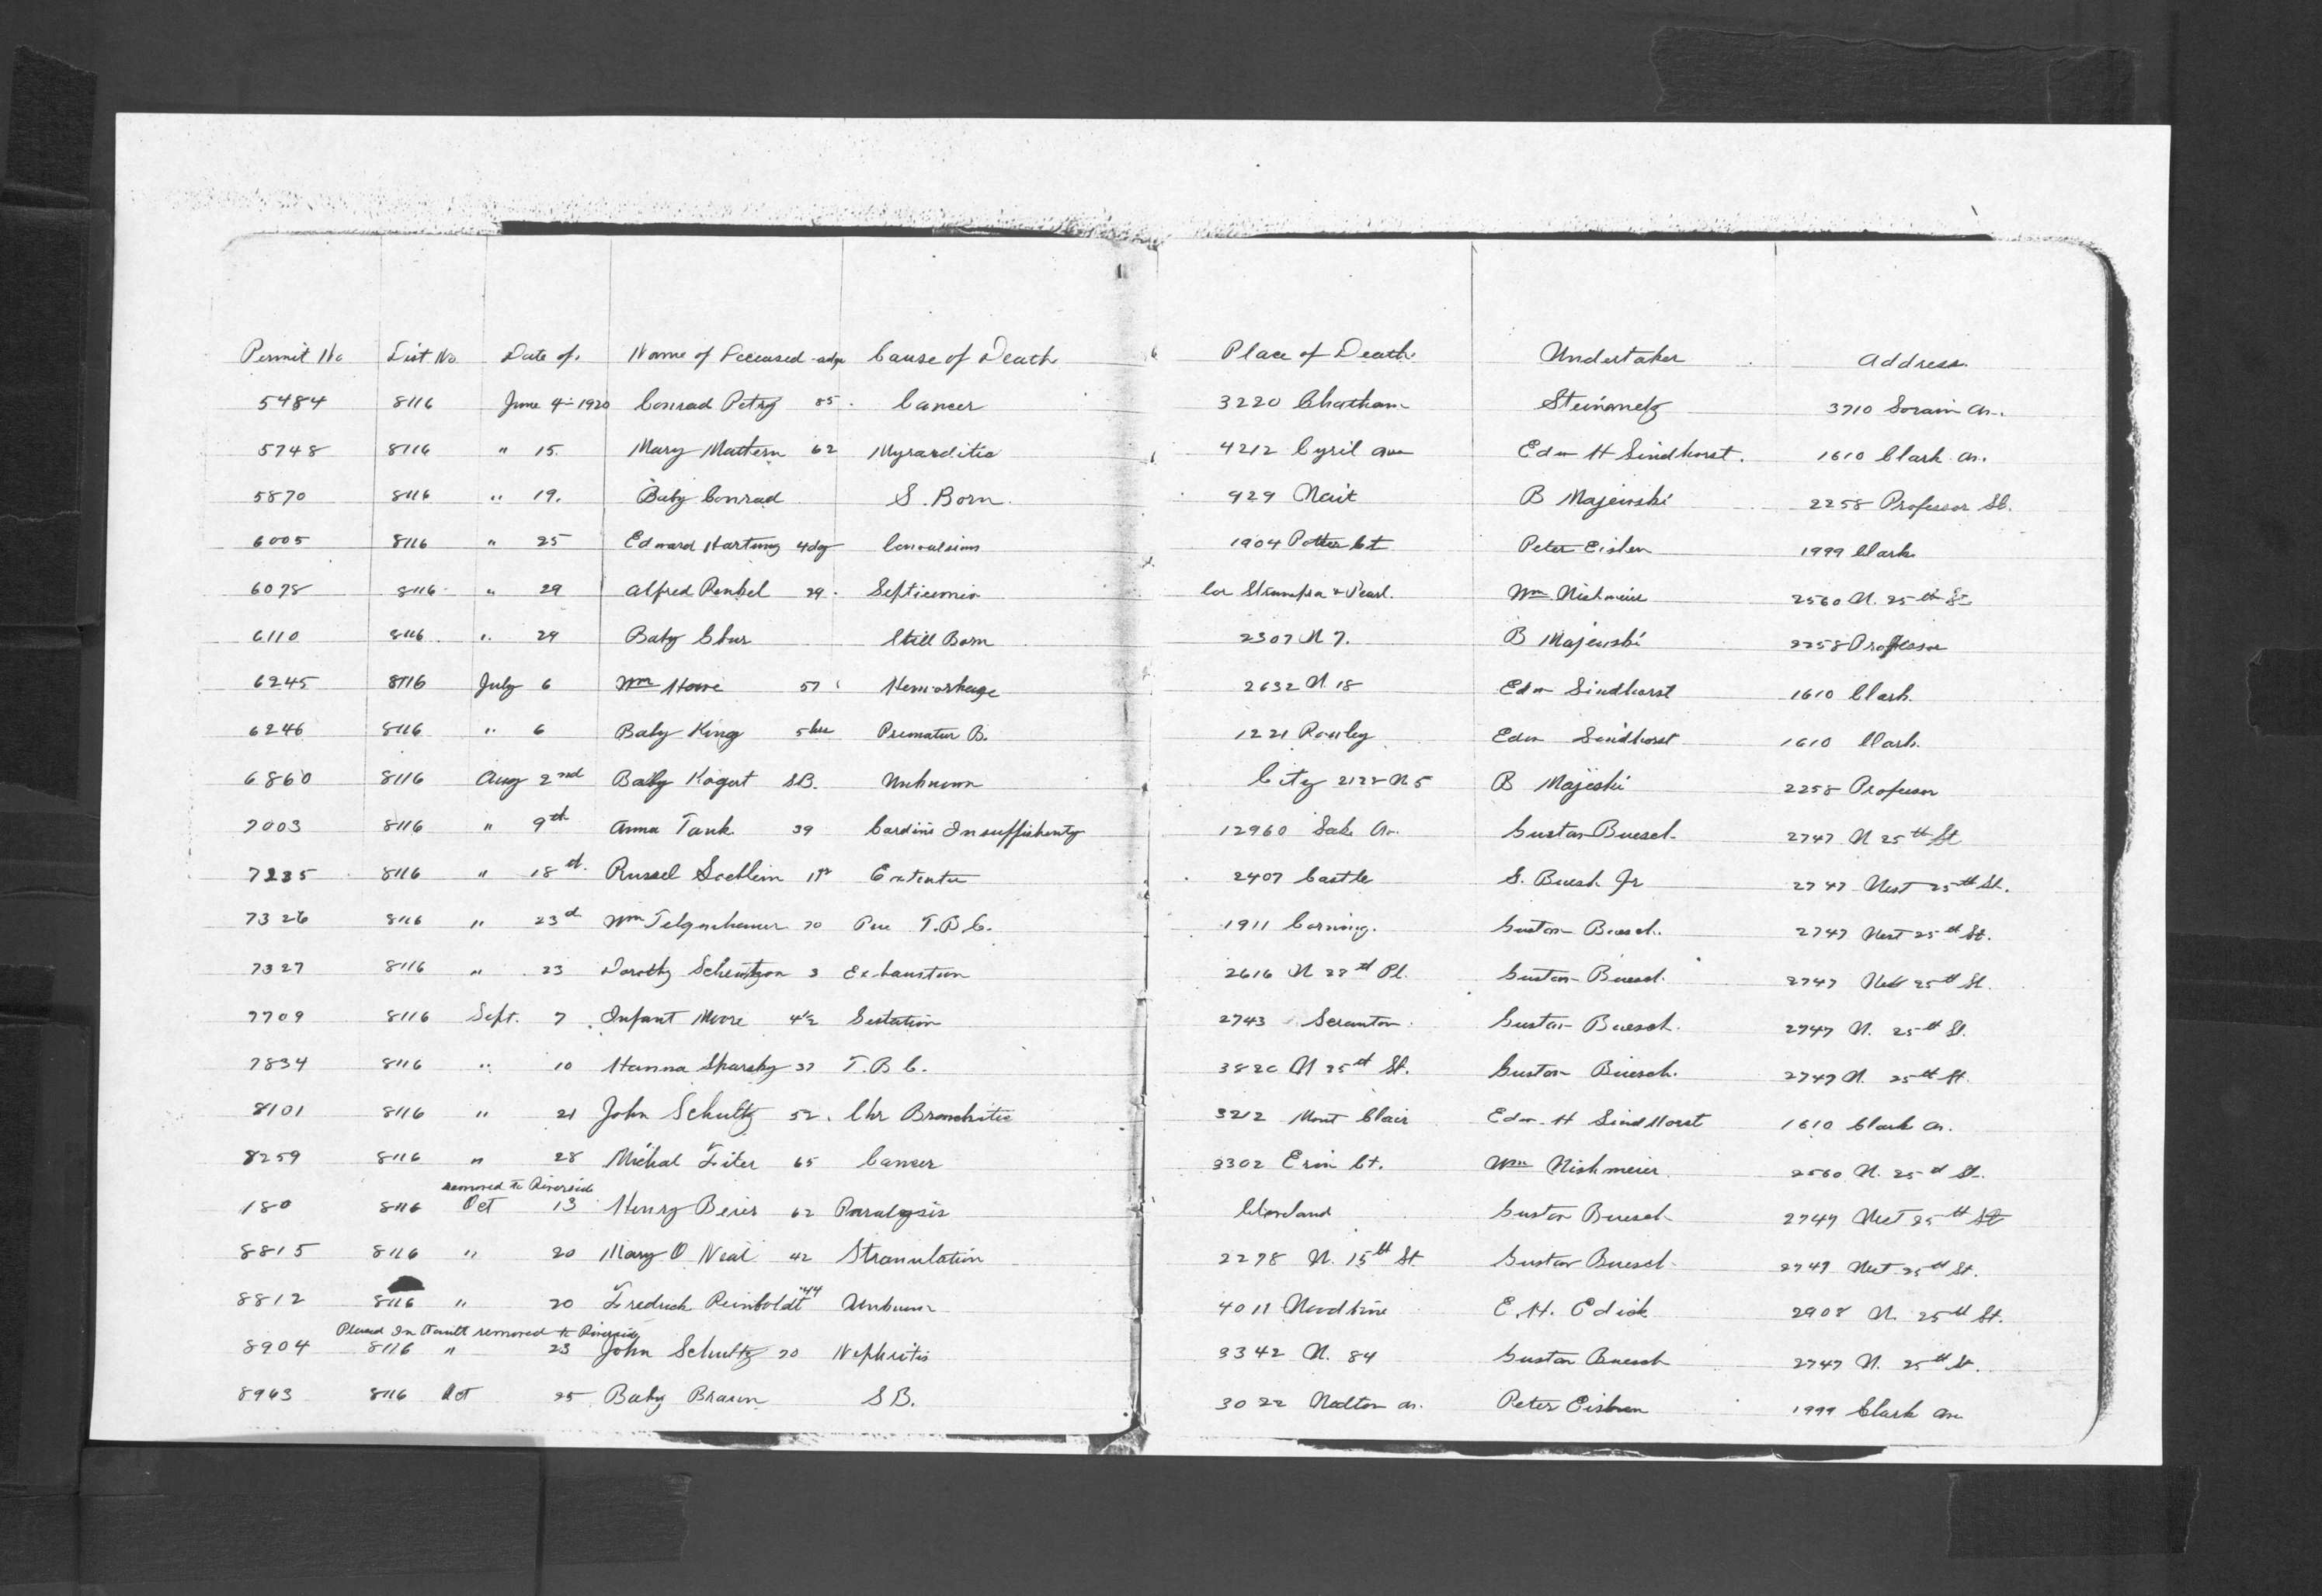 Permit No Dist No Date of. Name of Deceased - adge Cause of Death Place of Death Undertaker Address.
5484 8116 June 4 - 1920 Conrad Petry 85 Cancer 3220 Chatham Steinmetz 3710 Lorain Av.
5748 8116 " 15. Mary Mattern 62 Myrarditis 4212 Cyril ave Edw H Lindhorst. 1610 Clark Av.
5870 8116 " 19. Baby Conrad S. Born. 929 B Majewski 2258 Professor St.
6005 8116 " 25 Edward Hartung 4 dy Convulsions 1904 Potter Ct Peter Eislen 1999 Clark
6078 8116 " 29 Alfred 29 Septicemia Cor & Pearl. Wm 2560 W. 25th St
6110 8116 " 29 Baby Still Born 2307 W 7. B Majewski 2258 Professor
6245 8116 July 6 Wm Howe 57 Hemorhage 2632 W. 18 Edw Lindhorst 1610 Clark.
6246 8116 " 6 Baby King 5 hrs Prematur B. 1221 Rowley Edw Lindhorst 1610 Clark.
6860 8116 Aug 2nd Baby Kogut S.B. Unknown City 2128 W 5 B Majeski 2258 Professor
7003 8116 " 9th Anna Tank 39 Cardine Insuffishenty 12960 Lake Av. Gustav Buesch 2747 W 25th St
7235 8116 " 18th Russel 2407 Castle G. Buesch Jr 2747 West 25th St.
7326 8116 " 23d Wm 70 T.B.C. 1911 Corning. Gustav Buesch. 2747 West 25th St.
7327 8116 " 23 Dorothy 3 Exhaustion 2616 W Pl. Gustav Buesch. 2747 West 25th St.
7709 8116 Sept. 7 Infant Moore 4½ Gestation 2743 Scranton Gustav Buesch. 2747 W. 25th St.
7834 8116 " 10 Hanna 37 T.B.C. 3820 W 35th St. Gustav Buesch. 2747 W. 25th St.
8101 8116 " 21 John Schultz 52. Chr Bronchitis 3212 Mont Clair Edw. H LindHorst 1610 Clark Av.
8259 8116 " 28 Michal Fiter 65 Cancer 3302 Erin Ct. Wm Nishmeier. 2560 W. 25th St.
removed to Riverside
180 8116 Oct 13 Henry Beier 62 Paralysis Cleveland Gustav Buesch 2747 West 25th St
8815 8116 " 20 Mary O Neal 42 Stranulation 2278 W. 15th St. Gustav Buesch 2747 West 25th St.
8812 8116 " 20 Fredrick Reinboldt 44 Unknown 4011 Woodbine E. H. Edick 2908 W. 25th St.
Placed In Vault removed to Riverside
8904 8116 " 23 John Schultz 70 Nephritis 3342 W. 84 Gustav Buesch 2747 W. 25th St.
8963 8116 Oct 25 Baby Braun S B. 3022 Av. Peter Eislen 1999 Clark Ave